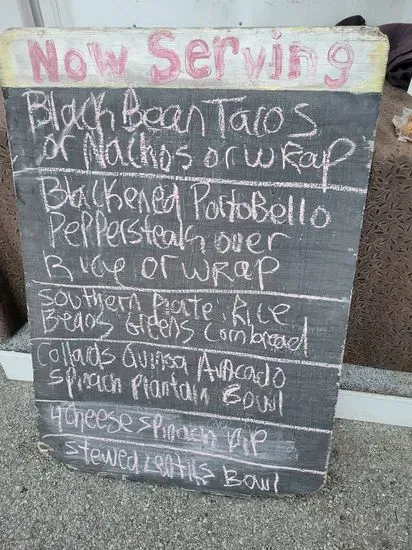 Now Serving
Black Bean Tacos
or Nachos or wrap
Blackened PortoBello
Peppersteak over
Rice or wrap
Southern Plate: Rice
Beans Greens Cornbread
Collards Quinoa Avocado
Spinach Plantain Bowl
4 cheese spinach Dip
Stewed Lentils Bowl